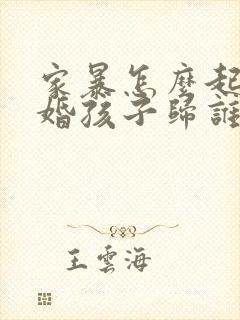 家暴怎麼起
婚孩子歸誰
王雲海